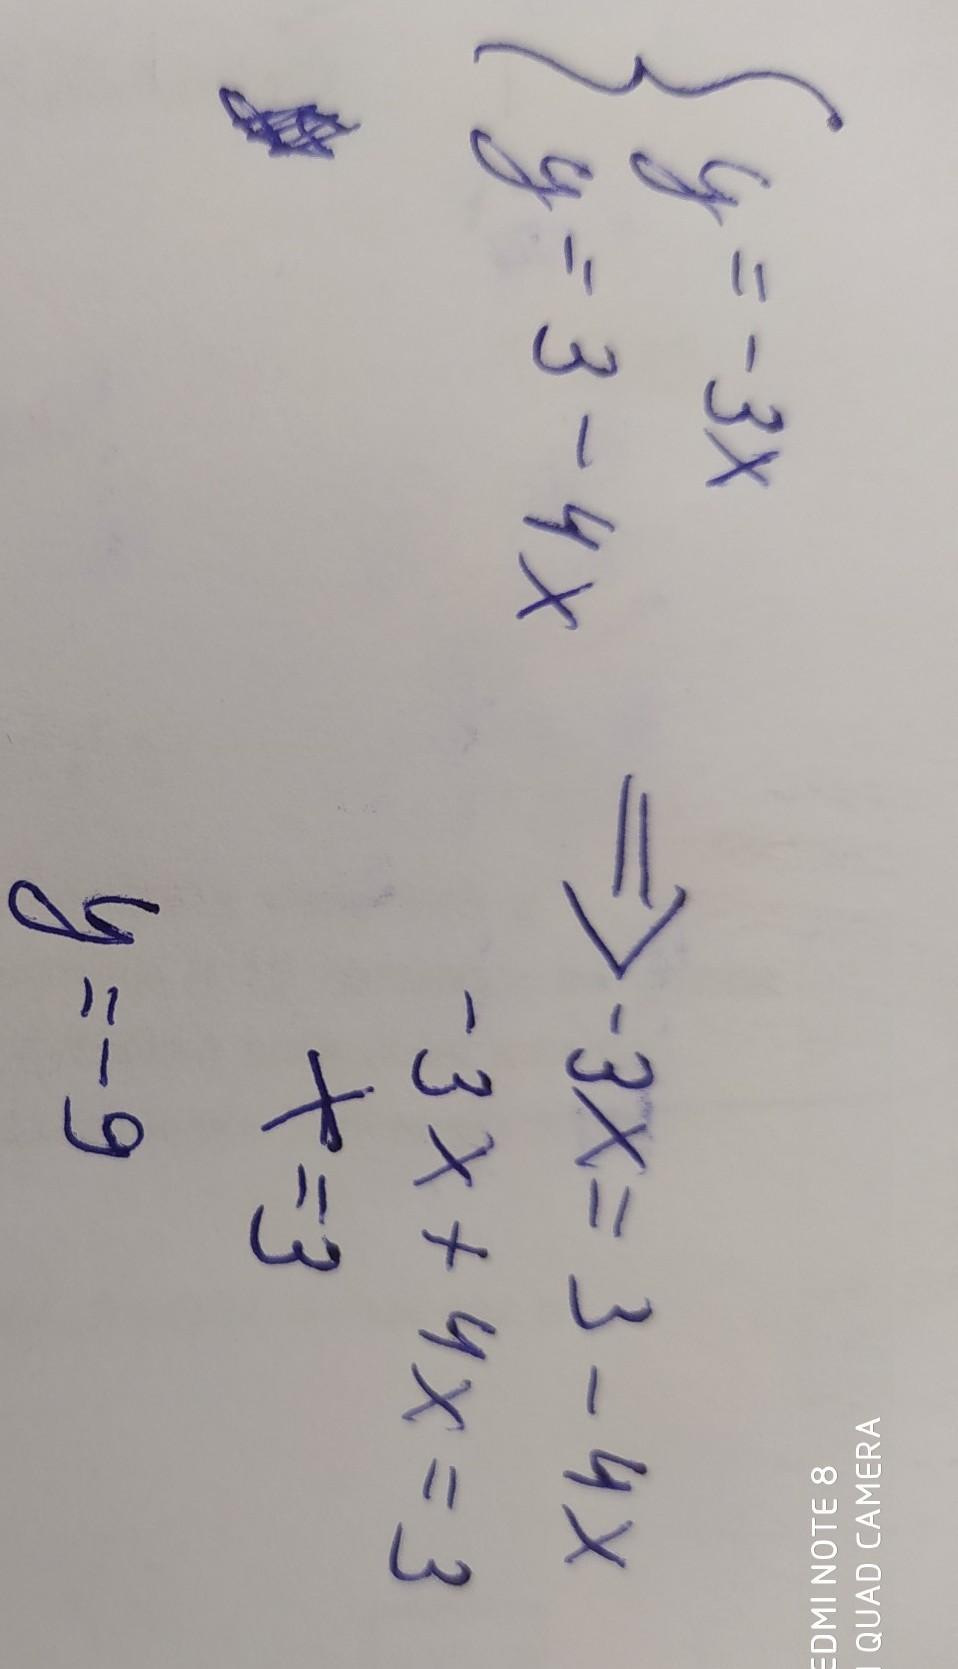 y = -3x
y = 3 - 4x
⇒ -3x = 3 - 4x
-3x + 4x = 3
x = 3
y = -9
EDMI NOTE 8
QUAD CAMERA